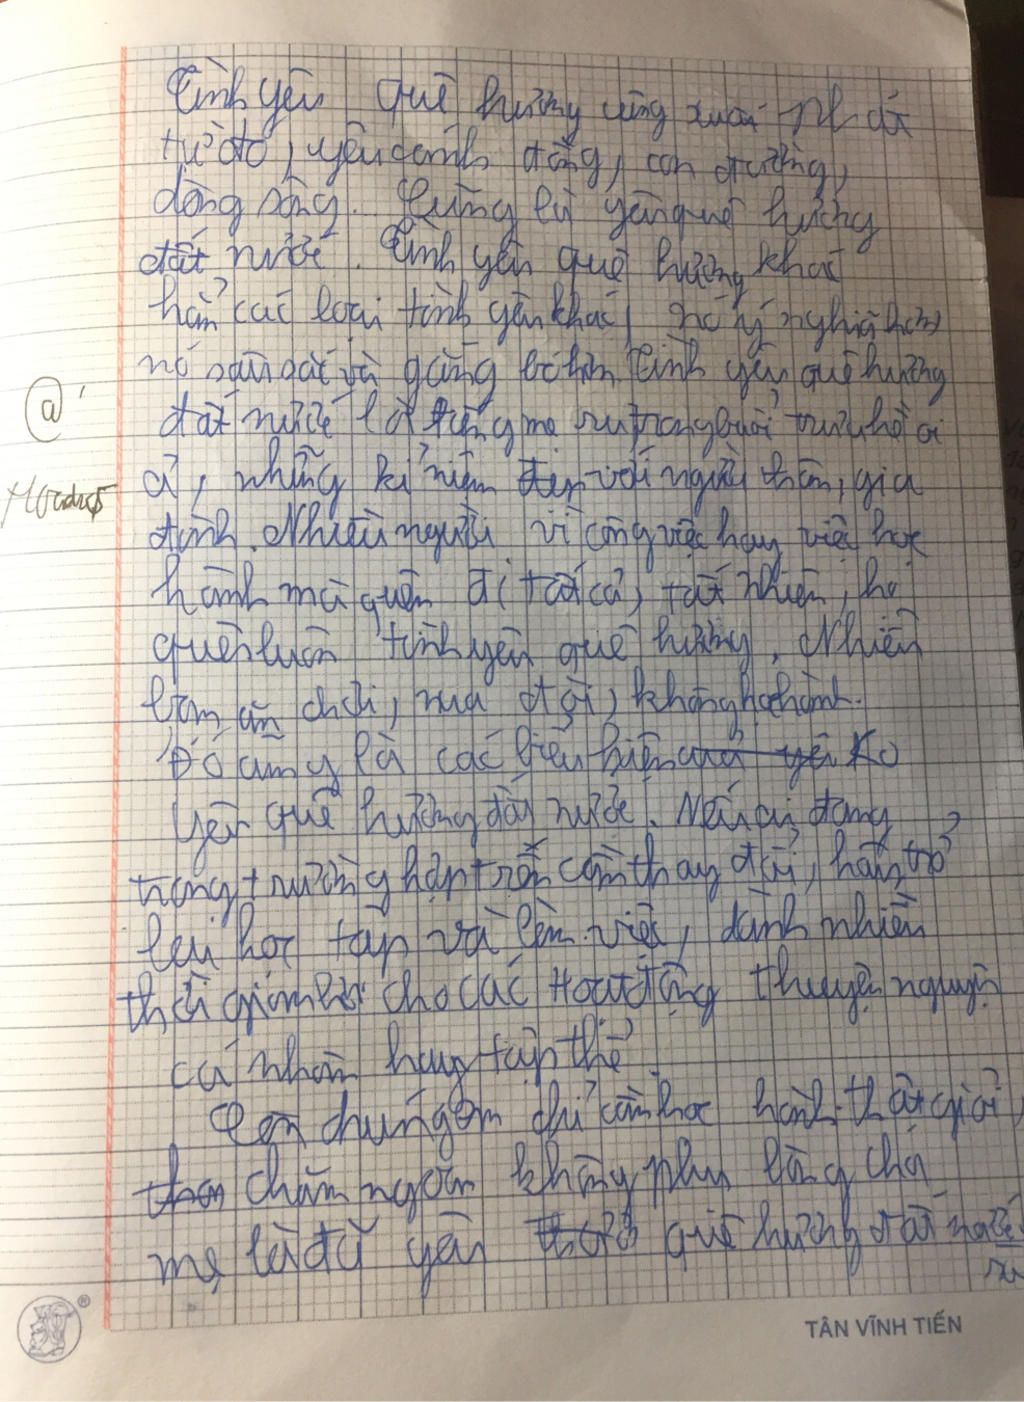 Tình yêu quê hương cũng xuất ph át
từ đó, yêu cánh đồng, con đường,
dòng sông. Cũng là yêu quê hương
đất nước. Tình yêu quê hương khác
hẳn các loại tình yêu khác, nó ý nghiã hơn,
nó sâu sắc và gắng bó hơn. Tình yêu quê hương
đất nước là tiếng mẹ ru trong buổi trưa hè ơi
ả, những kỉ niệm đẹp với người thân, gia
đình. Nhiều người vì công việc hay việc học
hành mà quên đi tất cả, tất nhiên, họ
quên luôn tình yêu quê hương. Nhiều
ăn chơi, đời, không học hành.
Đó là các biểu hiện của yêu Ko
yêu quê hương đất nước. Nếu ai đang
trong trường hợp trên cần thay đổi, hãy trở
lại học tập và làm việc, dành nhiều
thời gian hơn cho các Hoạt động thuyện nguyện
cá nhân hay tập thể
Còn chúng em chỉ cần học hành thật giỏi,
chăm ngoan không phụ lòng cha
mẹ là đã yêu quê hương đất nước
TÂN VĨNH TIẾN
®